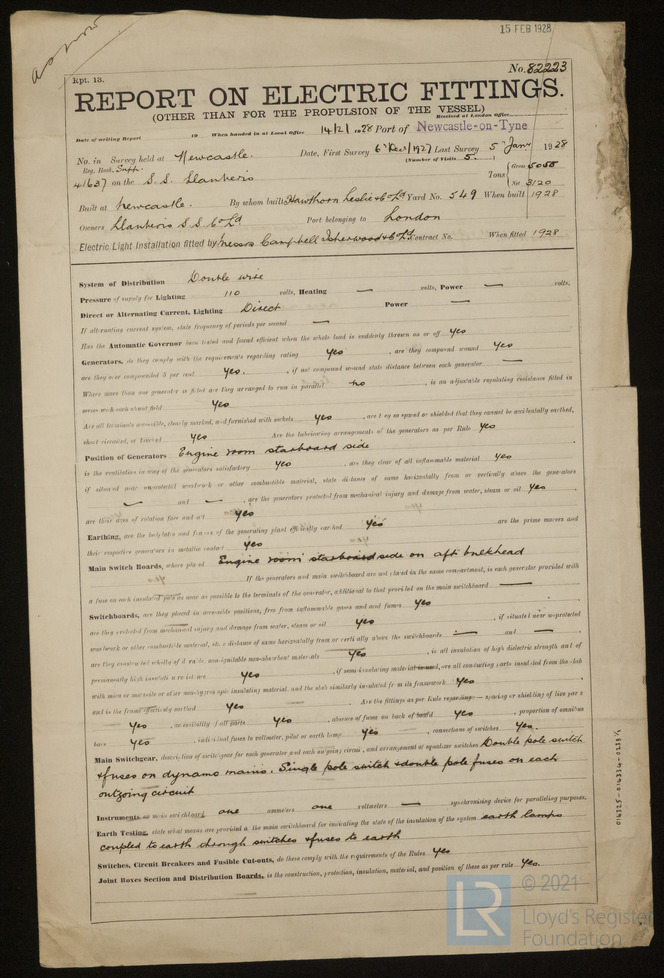 15 FEB 1928
as now
Rpt. 13.
No. 82223
REPORT ON ELECTRIC FITTINGS.
(OTHER THAN FOR THE PROPULSION OF THE VESSEL)
Received at London Office
Date of writing Report 19 When handed in at Local Office 14/2/1928 Port of Newcastle-on-Tyne
No. in Survey held at Newcastle. Date, First Survey 6 Dec/1927 Last Survey 5 Jany 1928
Reg. Book. Supp. (Number of Visits 5.)
41637 on the S.S. Llanberis Tons { Gross 5055
Net 3120
Built at Newcastle. By whom built Hawthorn Leslie & Co Ld Yard No. 549 When built 1928
Owners Llanberis S.S. Co Ld Port belonging to London
Electric Light Installation fitted by Messrs Campbell Isherwood & Co Ld Contract No. When fitted 1928
System of Distribution Double wire
Pressure of supply for Lighting 110 volts, Heating — volts, Power — volts.
Direct or Alternating Current, Lighting Direct Power —
If alternating current system, state frequency of periods per second —
Has the Automatic Governor been tested and found efficient when the whole load is suddenly thrown on or off Yes
Generators, do they comply with the requirements regarding rating Yes, are they compound wound Yes
are they over compounded 5 per cent. Yes., if not compound wound state distance between each generator —
Where more than one generator is fitted are they arranged to run in parallel no, is an adjustable regulating resistance fitted in
series with each shunt field Yes
Are all terminals accessible, clearly marked, and furnished with sockets Yes, are they so spaced or shielded that they cannot be accidentally earthed,
short circuited, or touched Yes Are the lubricating arrangements of the generators as per Rule Yes
Position of Generators Engine room starboard side
is the ventilation in way of the generators satisfactory Yes, are they clear of all inflammable material Yes
if situated near unprotected woodwork or other combustible material, state distance of same horizontally from or vertically above the generators
— and —, are the generators protected from mechanical injury and damage from water, steam or oil Yes
are their axes of rotation fore and aft Yes
Earthing, are the bedplates and frames of the generating plant efficiently earthed Yes are the prime movers and
their respective generators in metallic contact Yes
Main Switch Boards, where placed Engine room starboard side on aft bulkhead
If the generators and main switchboard are not placed in the same compartment, is each generator provided with
a fuse on each insulated pole as near as possible to the terminals of the generator, additional to that provided on the main switchboard —
Switchboards, are they placed in accessible positions, free from inflammable gases and acid fumes Yes
are they protected from mechanical injury and damage from water, steam or oil Yes, if situated near unprotected
woodwork or other combustible material, state distance of same horizontally from or vertically above the switchboards — and —
are they constructed wholly of durable, non-ignitable non-absorbent materials Yes, is all insulation of high dielectric strength and of
permanently high insulation resistance Yes, if semi-insulating material is used, are all conducting parts insulated from the slab
with mica or micanite or other non-hygroscopic insulating material, and the slab similarly insulated from its framework Yes
and is the frame effectively earthed Yes Are the fittings as per Rule regarding:— spacing or shielding of live parts
Yes, accessibility of all parts Yes, absence of fuses on back of board Yes, proportion of omnibus
bars Yes, individual fuses to voltmeter, pilot or earth lamp Yes, connections of switches Yes.
Main Switchgear, description of switchgear for each generator and each outgoing circuit, and arrangement of equalizer switches Double pole switch
& fuses on dynamo mains. Single pole switch & double pole fuses on each
outgoing circuit
Instruments on main switchboard one ammeters one voltmeters — synchronising device for paralleling purposes.
Earth Testing, state what means are provided at the main switchboard for indicating the state of the insulation of the system earth lamps
coupled to earth through switches & fuses to earth
Switches, Circuit Breakers and Fusible Cut-outs, do these comply with the requirements of the Rules Yes
Joint Boxes Section and Distribution Boards, is the construction, protection, insulation, material, and position of these as per rule Yes.
© 2021
LR
Lloyd's Register
Foundation